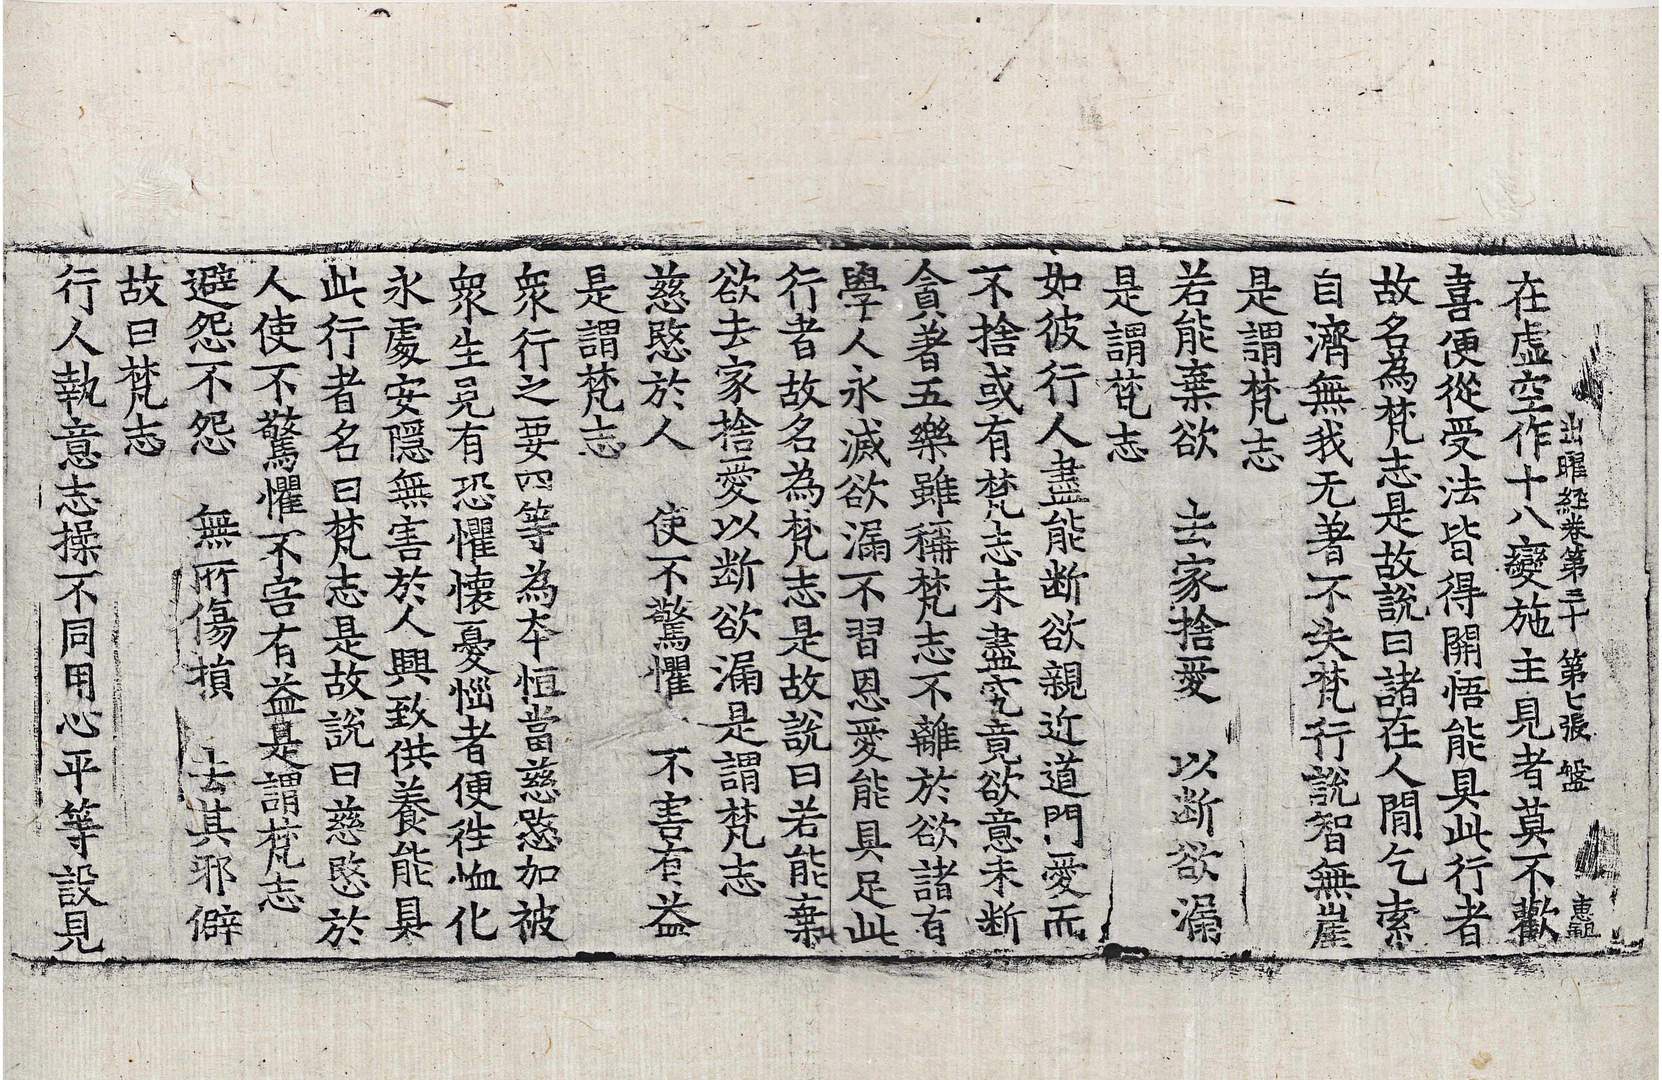 出曜經卷第三十 第七張 盤 惠且
在虛空作十八變施主見者莫不歡
喜便從受法皆得開悟能具此行者
故名為梵志是故說曰諸在人間乞索
自濟無我无著不失梵行說智無崖
是謂梵志
若能棄欲 去家捨愛 以断欲漏
是謂梵志
如彼行人盡能断欲親近道門愛而
不捨或有梵志未盡究竟欲意未断
貪著五樂雖稱梵志不離於欲諸有
學人永滅欲漏不習恩愛能具足此
行者故名為梵志是故說曰若能棄
欲去家捨愛以断欲漏是謂梵志
慈愍於人 使不驚懼 不害有益
是謂梵志
眾行之要四等為本恒當慈愍加被
眾生見有恐懼懷憂惱者便往恤化
永處安隱無害於人興致供養能具
此行者名曰梵志是故說曰慈愍於
人使不驚懼不害有益是謂梵志
避怨不怨 無所傷損 去其邪僻
故曰梵志
行人執意志操不同用心平等設見